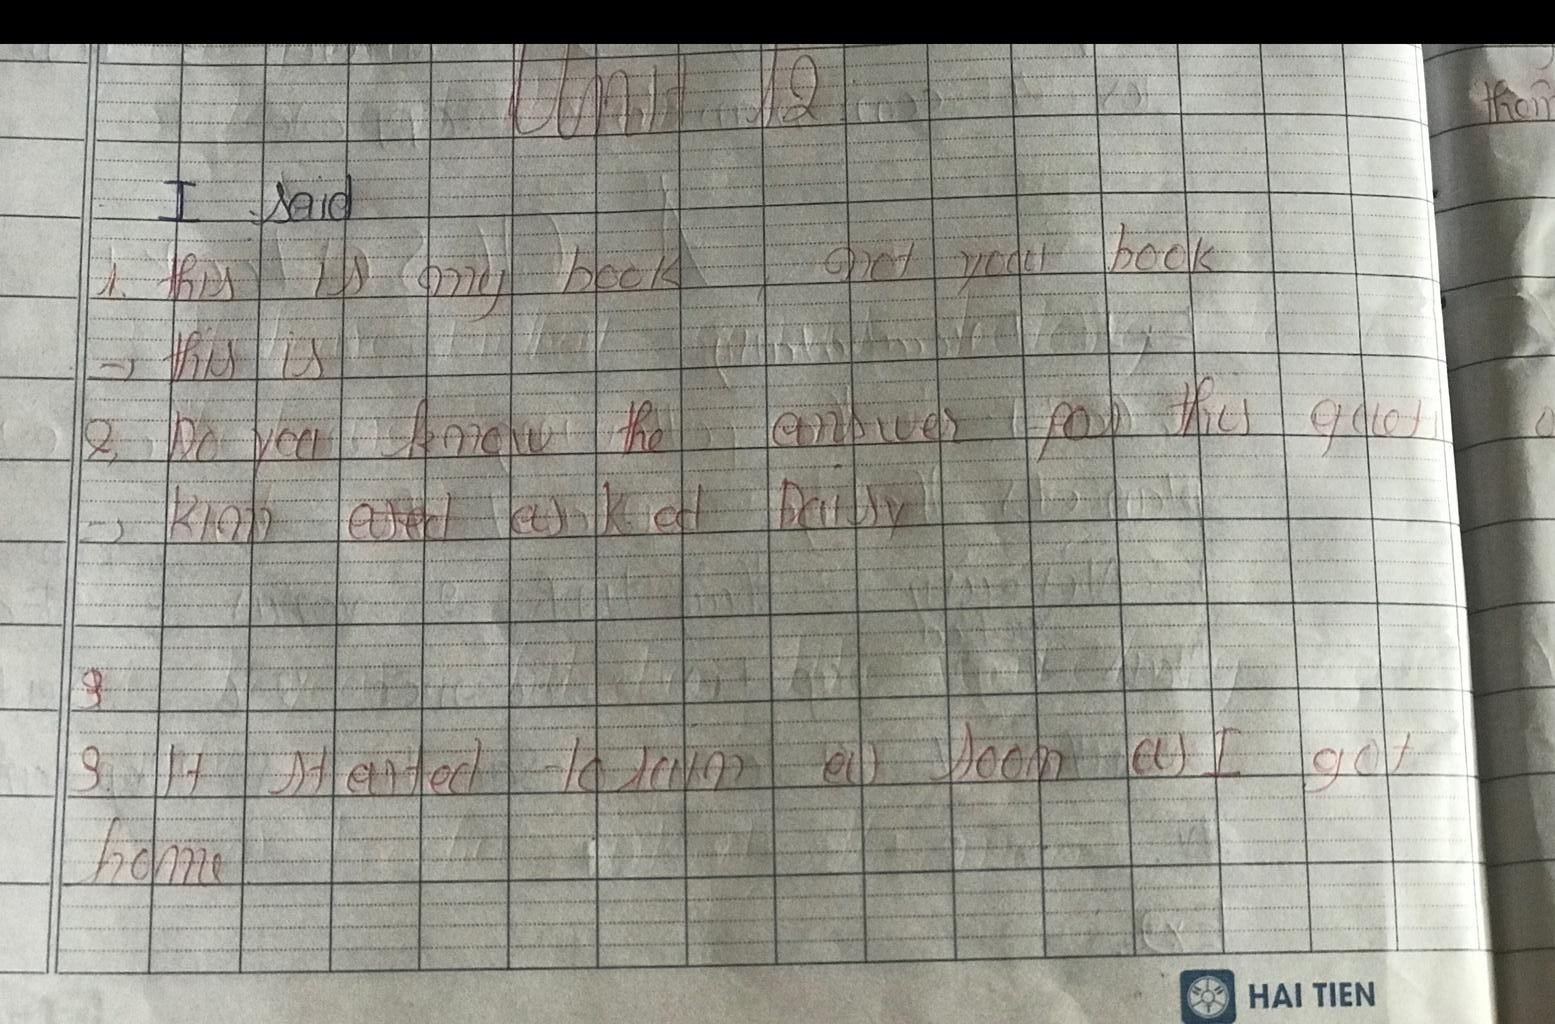 Unit 12
I said
1. this is my book, not your book
→ this is
2, Do you know the answer for this
→ asked Daisy
3
3. It started to rain as soon as I got
home
HAI TIEN